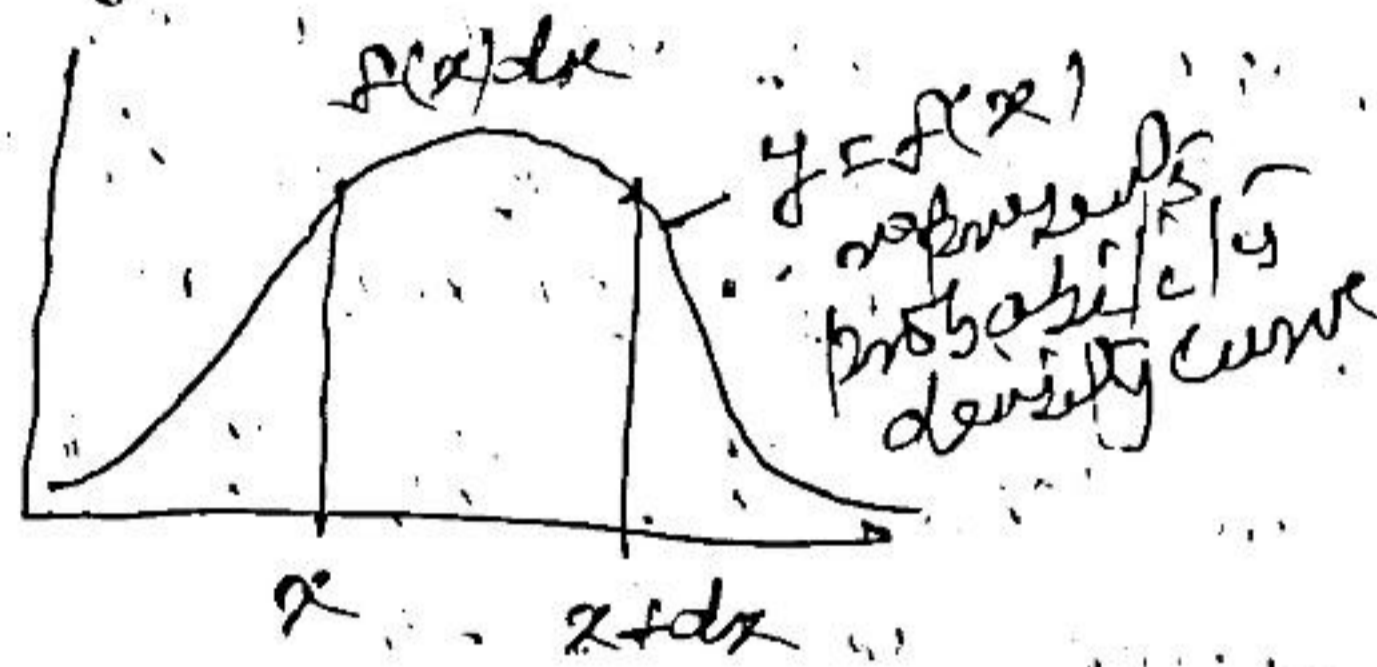 f(x)dx
y = f(x)
represents
probability
density curve
x
x+dx